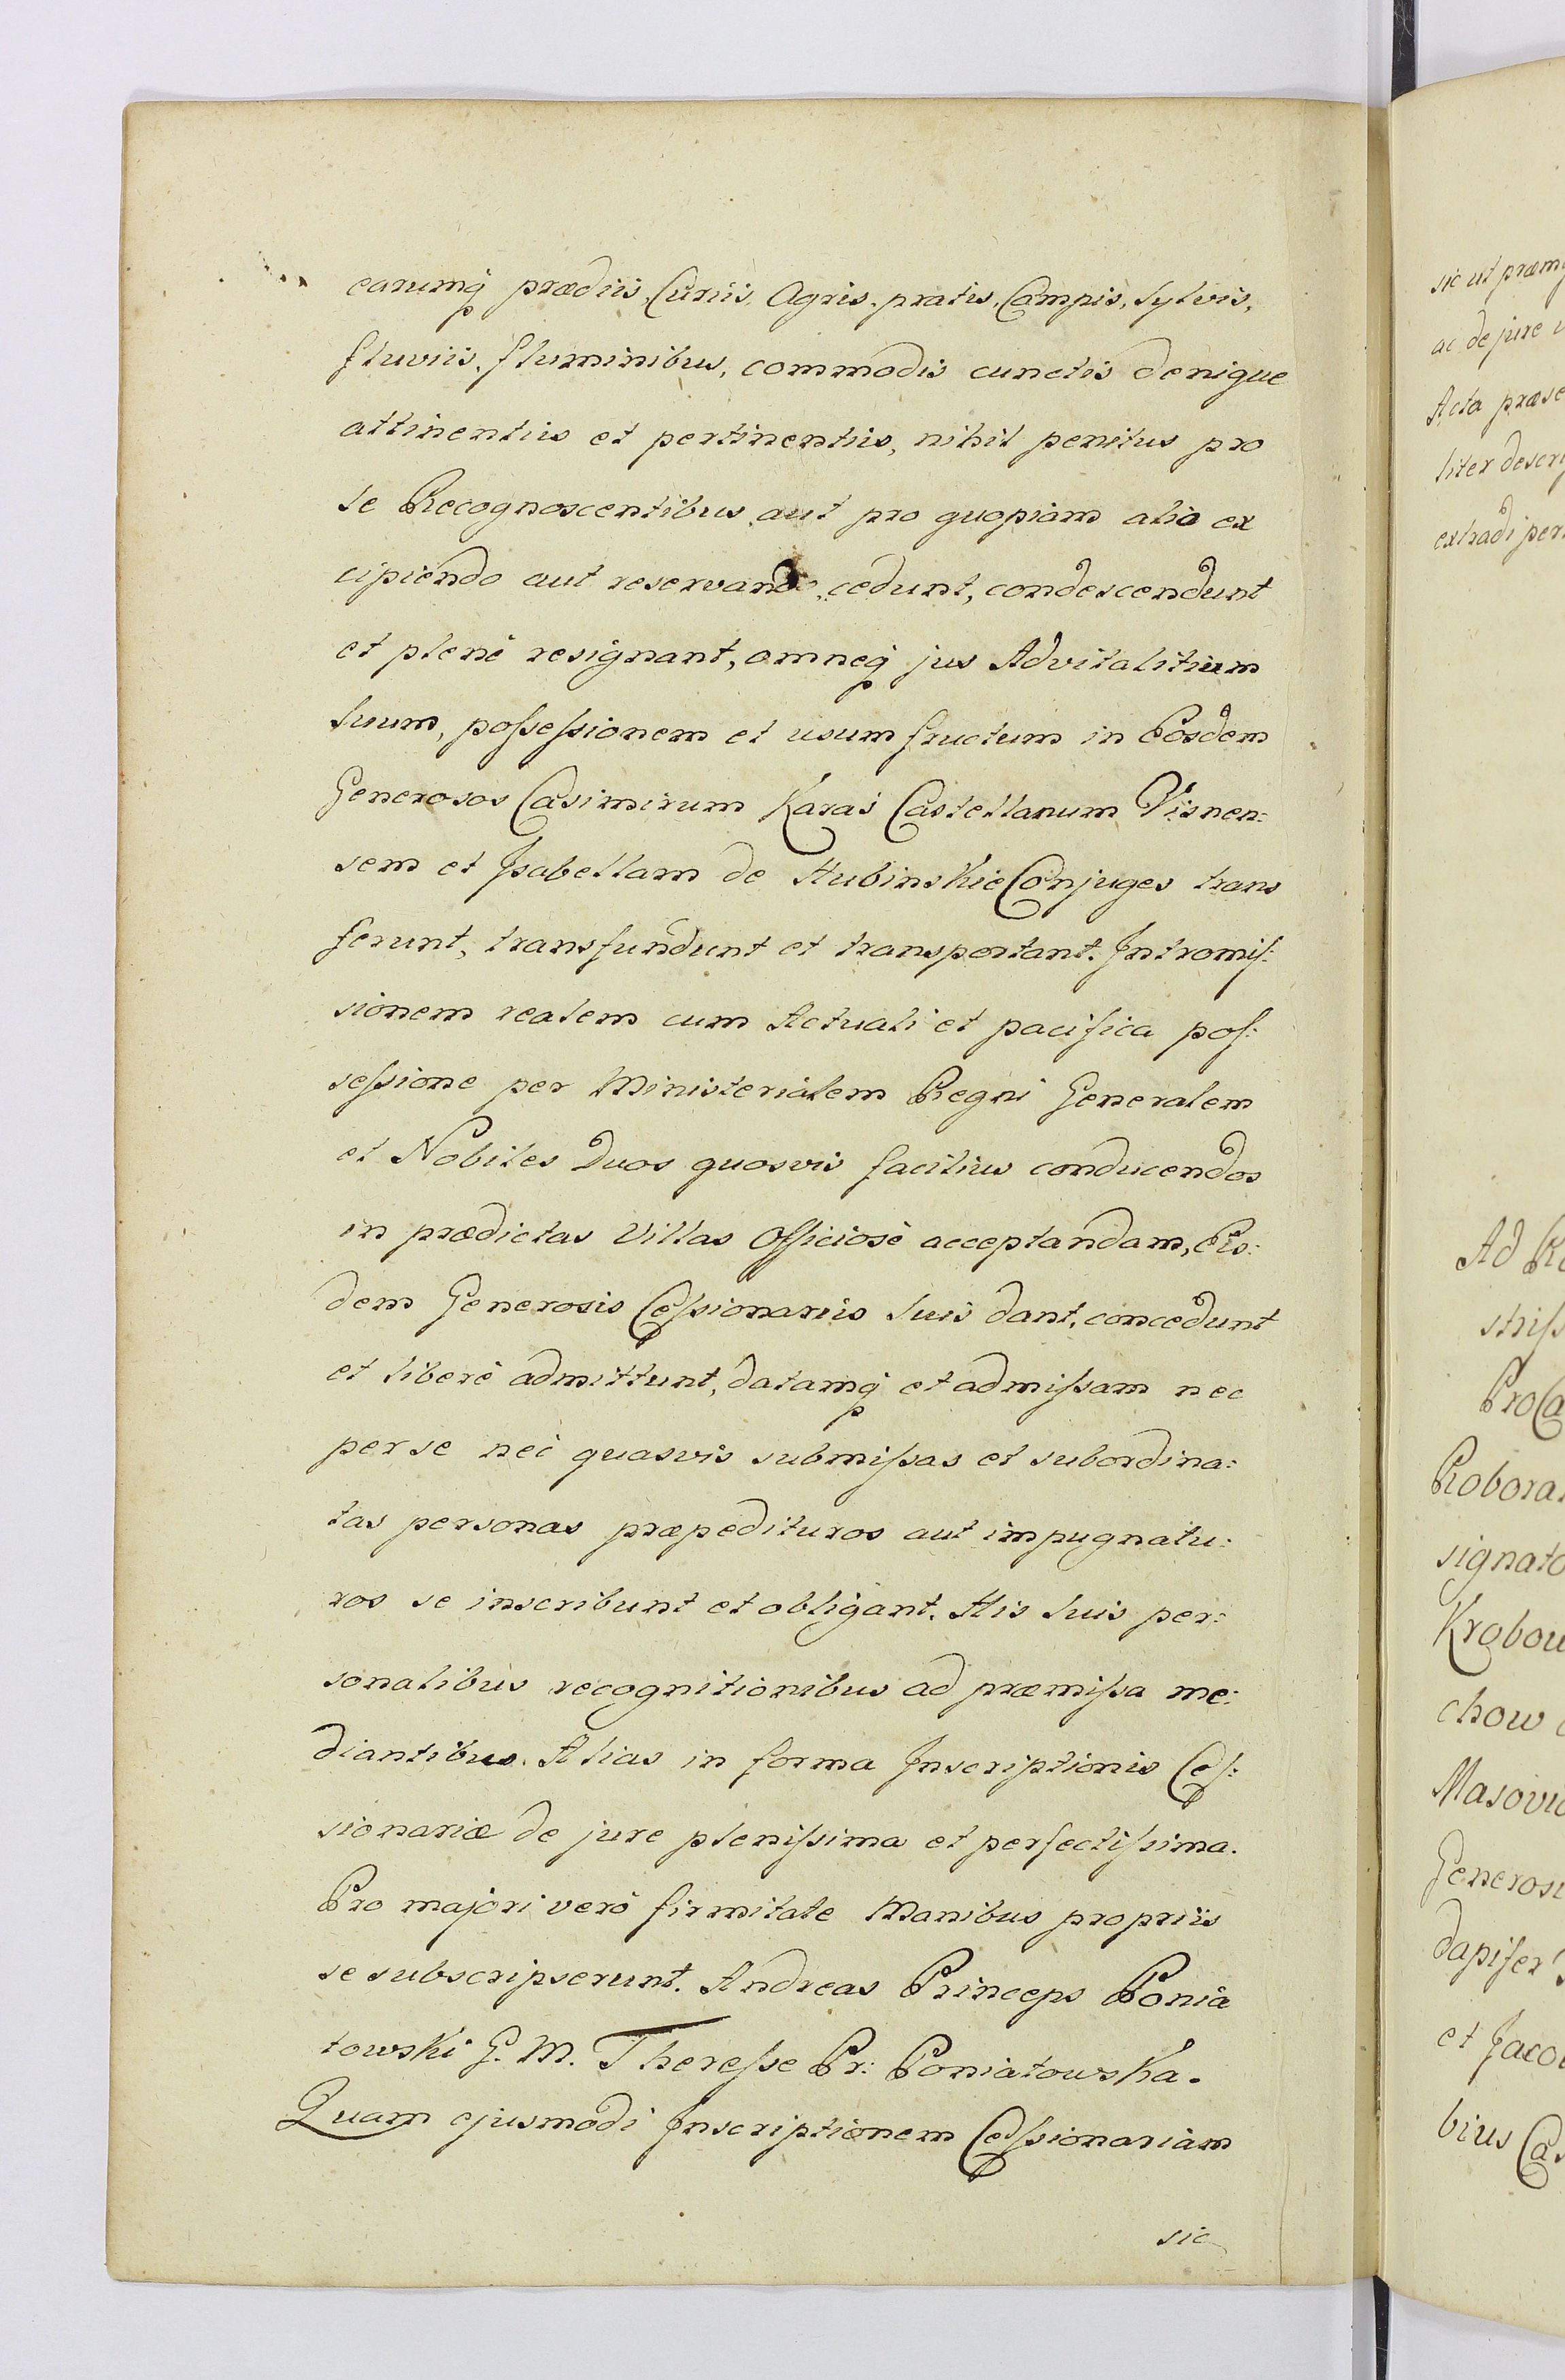 earumq₃ prædiis, Curiis, Agris, pratis, Campis, Sylvis,
fluviis, fluminibus, commodis cunctis denique
attinentiis et pertinentiis, nihil penitus pro
se Recognoscentibus aut pro quopiam alio ex
cipiendo aut reservando, cedunt, condescendunt
et plenè resignant, omneq₃ jus Advitalitium
Suum, poſseſsionem et usum fructum in Eosdem
Generosos Casimirum Karaś Castellanum Visnen:
sem et Isabellam de Hubinskie Conjuges trans
ferunt, transfundunt et transportant. Intromiſ:
sionem realem cum Actuali et pacifica poſ:
seſsione per Ministerialem Regni Generalem
et Nobiles Duos quosvis facilius conducendos
in prædictas Villas Officiosè acceptandam, Eis:
dem Generosis Ceſsionariis Suis dant, concedunt
et liberè admittunt, datamq₃ et admiſsam nec
per se nec quasvis submiſsas et subordina:
tas personas præpedituros aut impugnatu:
ros se inscribunt et obligant. His Suis per:
sonalibus recognitionibus ad præmiſsa me:
diantibus. Alias in forma Inscriptionis Ceſ:
sionariæ de jure pleniſsima et perfectiſsima.
Pro majori verò firmitate Manibus propriis
se subscripserunt. Andreas Princeps Ponia
towski G. M. Thereſse Pr: Poniatowska.
Quam ejusmodi Inscriptionem Ceſsionariam
sic
sic ut præm
ac de jure
Acta præse
liter descri
extradi per
Ad
striſs
Pro Ca
Robora
signato
Krobow
chow
Masovi
Generos
dapifer
et Jaco
bius Cas